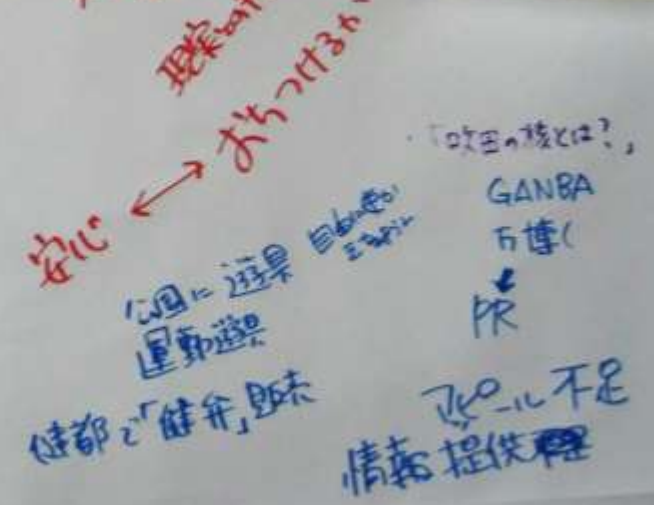 現実
安心 ↔ おちつける
「吹田の核とは?」
GANBA
万博(
↓
PR
公園に遊具
運動遊具
健都で「健弁」販売
アピール不足
情報提供